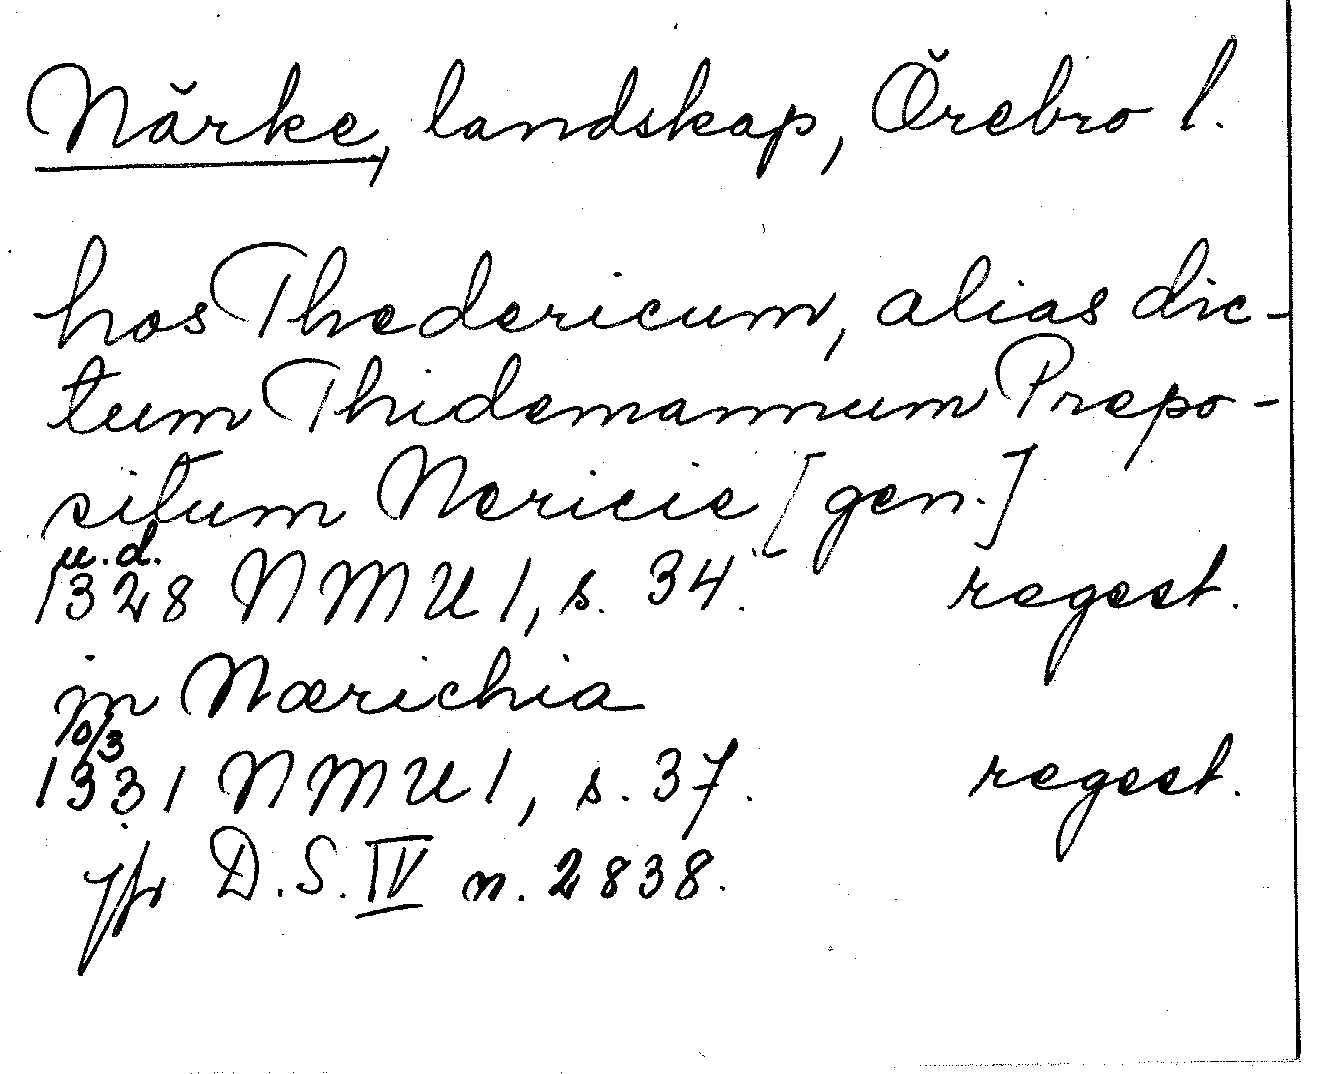 Närke, landskap, Örebro l.
hos Thedericum, alias dic-
tum Thidemannum Prepo-
situm Nericie [gen.]
u.d.
1328 NMU 1, s. 34. regest.
in Nærichia
10/3
1331 NMU 1, s. 37. regest.
jfr D.S. IV n. 2838.